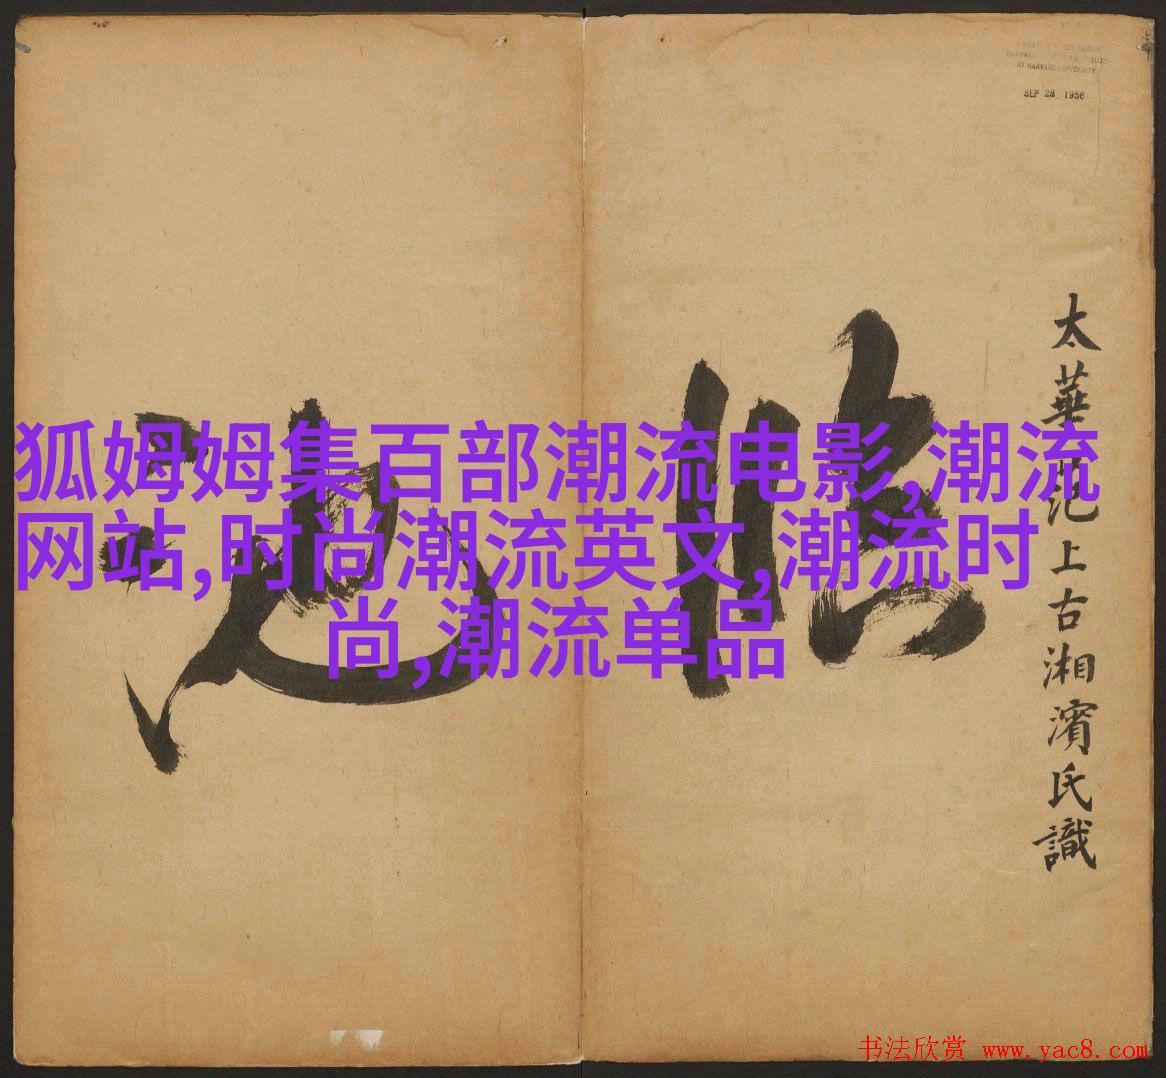 AT HARVARD UNIVERSITY
SEP 28 1956
狐姆姆集百部潮流电影,潮流
网站,时尚潮流英文,潮流时
尚,潮流单品
太華上古湘濱氏識
书法欣赏 www.yac8.com